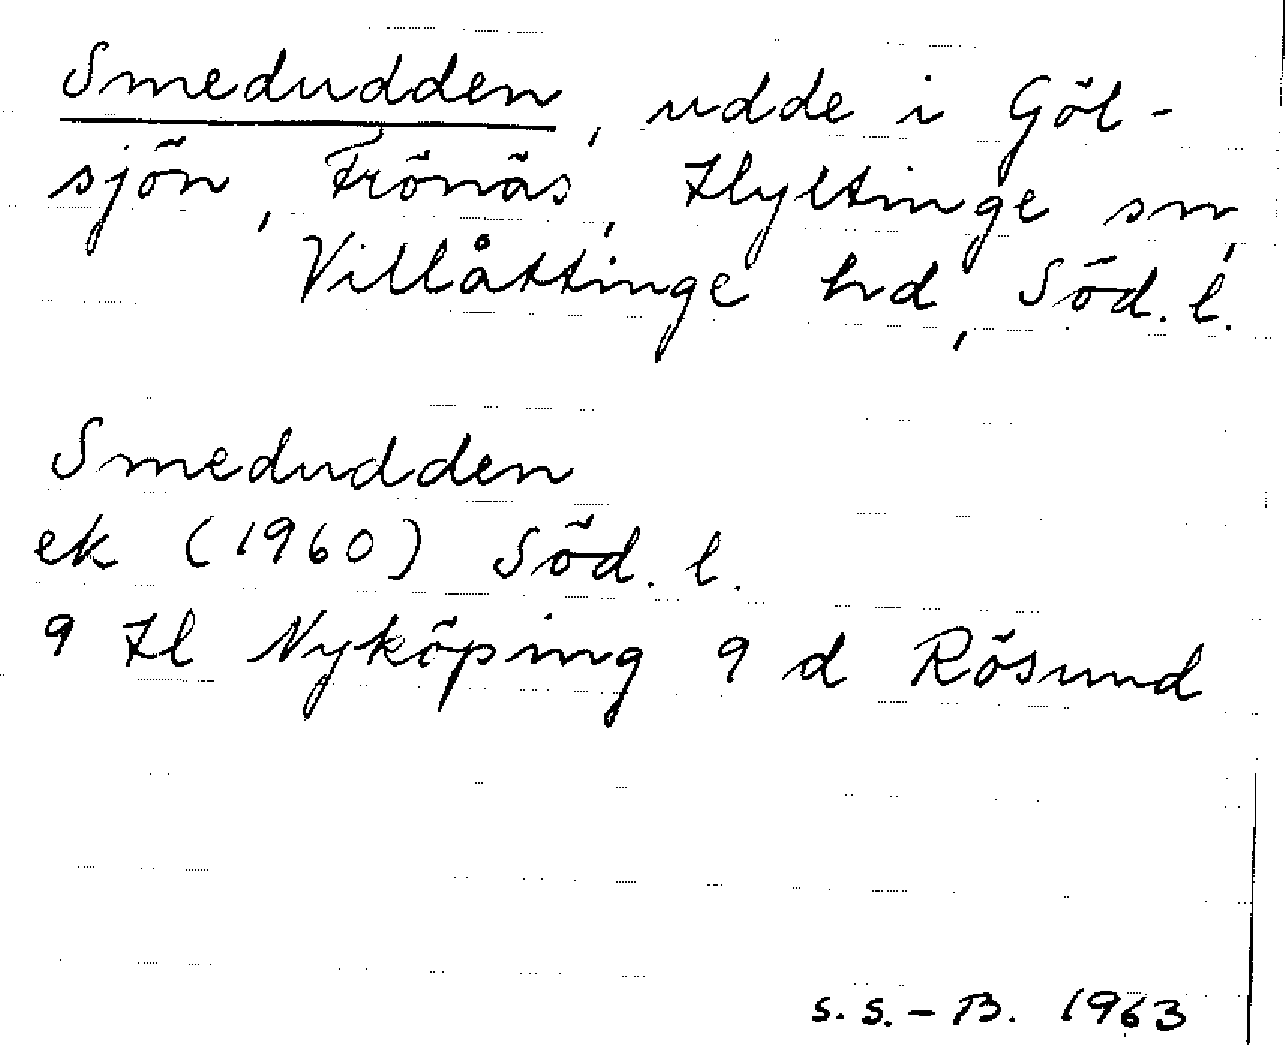 Smedudden, udde i Göl-
sjön, Frönäs, Hyltinge sn,
Villåttinge hd, Söd. l.
Smedudden
ek (1960) Söd. l.
9 H l Nyköping 9 d Rösund
S. S.-B. 1963